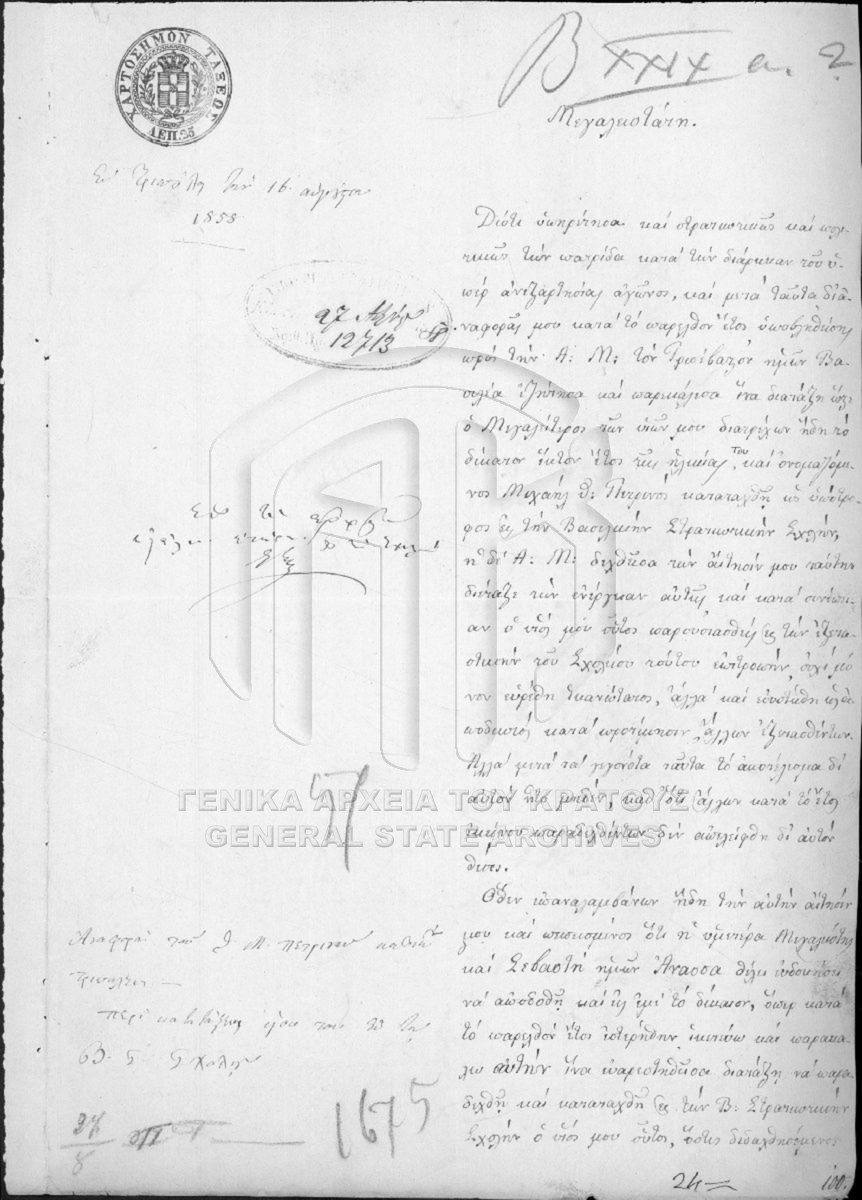 ΧΑΡΤΟΣΗΜΟΝ ΤΑΞΕΩΣ
ΛΕΠ. 25
Β ΧΧΙΧ α. 2
Μεγαλειοτάτη.
Ἐν Τριπόλει τὴν 16 αὐγούστου
1858
27
12713
Διότι ὑπηρέτησα καὶ στρατιωτικῶς καὶ πολι-
τικῶς τὴν πατρίδα κατὰ τὴν διάρκειαν τοῦ ὑ-
πὲρ ἀνεξαρτησίας ἀγῶνος, καὶ μετὰ ταῦτα δι' ἀ-
ναφορᾶς μου κατὰ τὸ παρελθὸν ἔτος ὑποβληθείσης
πρὸς τὴν Α: Μ: τὸν Τρισέβαστον ἡμῶν Βα-
σιλέα ἐζήτησα καὶ παρεκάλεσα ἵνα διατάξῃ ὥστε
ὁ Μεγαλείτερος τῶν υἱῶν μου διατρέχων ἤδη τὸ
δέκατον ἕκτον ἔτος τῆς ἡλικίας του, καὶ ὀνομαζόμε-
νος Μιχαὴλ Θ: Πετρινὸς καταταχθῇ ὡς ὑπότρο-
φος εἰς τὴν Βασιλικὴν Στρατιωτικὴν Σχολήν,
ἡ δὲ Α: Μ: δεχθεῖσα τὴν αἴτησίν μου ταύτην
διέταξε τὴν ἐνέργειαν αὐτῆς καὶ κατὰ συνέπει-
αν ὁ υἱός μου οὗτος παρουσιασθεὶς εἰς τὴν ἐξετα-
στικὴν τοῦ Σχολείου τούτου ἐπιτροπήν, οὐχὶ μό-
νον εὑρέθη ἱκανώτατος, ἀλλὰ καὶ
κατὰ προτίμησιν ἄλλων ἐξετασθέντων.
Ἀλλὰ μετὰ τὰ γεγονότα ταῦτα τὸ ἀποτέλεσμα δι'
αὐτὸν ἦτο μηδέν, καθ' ὅτι ἄλλων κατὰ τὸ ἔτος
ἐκεῖνο παραδεχθέντων δὲν ἀπελείφθη δι' αὐτὸν
θέσις.
Ὅθεν ἐπαναλαμβάνων ἤδη τὴν αὐτὴν αἴτησίν
μου καὶ πεπεισμένος ὅτι ἡ ὑμετέρα Μεγαλειότης
καὶ Σεβαστὴ ἡμῶν Ἄνασσα θέλει εὐδοκήσει
νὰ ἀποδοθῇ καὶ εἰς ἐμὲ τὸ δίκαιον, ὅπερ κατὰ
τὸ παρελθὸν ἔτος ἐστερήθην, ἱκετεύω καὶ παρακα-
λῶ αὐτὴν ἵνα εὐαρεστηθεῖσα διατάξῃ νὰ παρα-
δεχθῇ καὶ καταταχθῇ εἰς τὴν Β: Στρατιωτικὴν
Σχολὴν ὁ υἱός μου οὗτος, ὅστις διδαχθησόμενος
57
Ἀναφορὰ τοῦ Θ. Μ. Πετρινοῦ
Τριπόλεως
περὶ κατατάξεως υἱοῦ του εἰς τὴν
Β. Σ. Σχολήν
27
8
1675
24
100.
ΓΕΝΙΚΑ ΑΡΧΕΙΑ ΤΟΥ ΚΡΑΤΟΥΣ
GENERAL STATE ARCHIVES